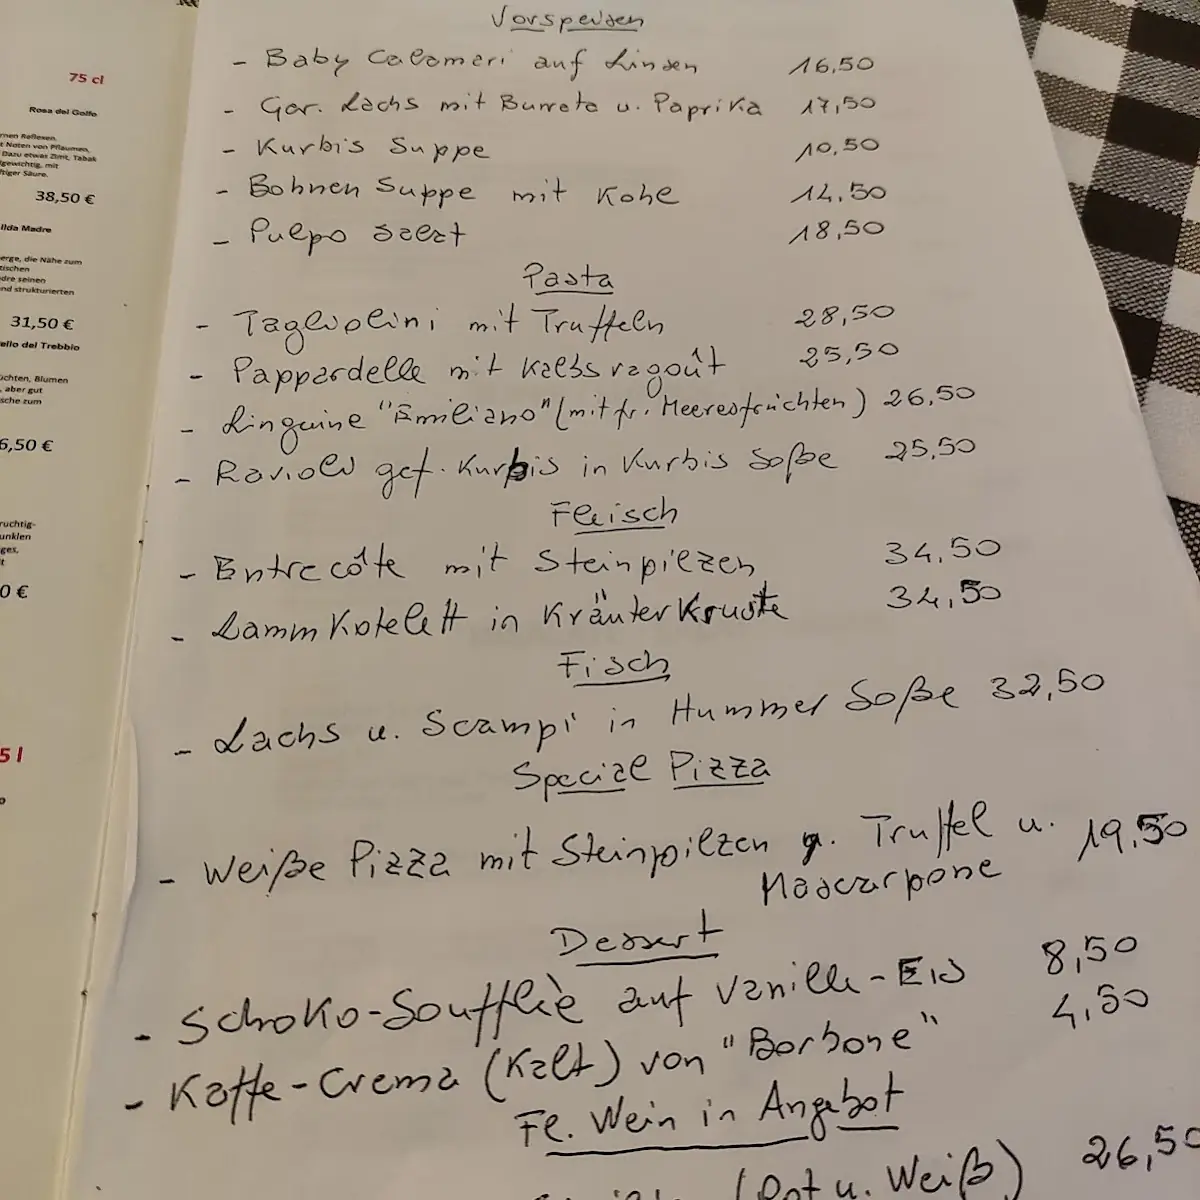 75 cl
Rosa del Golfo
rnen Reflexen.
t Noten von Pflaumen,
Dazu etwas Zimt, Tabak
lgewichtig, mit
ftiger Säure.
38,50 €
ilda Madre
erge, die Nähe zum
tischen
dre seinen
nd strukturierten
31,50 €
ello del Trebbio
üchten, Blumen
, aber gut
sche zum
6,50 €
ruchtig-
unklen
ges.
lt
0 €
5 l
Vorspeisen
- Baby Calamari auf Linsen 16,50
- Gar. Lachs mit Burrata u. Paprika 17,50
- Kurbis Suppe 10,50
- Bohnen Suppe mit 14,50
- Pulpo Salat 18,50
Pasta
- Tagliolini mit Truffeln 28,50
- Pappardelle mit Kalbsragoût 25,50
- Linguine "Emiliano" (mit fr. Meeresfrüchten) 26,50
- Ravioli gef. Kurbis in Kurbis Soße 25,50
Fleisch
- Entrecôte mit Steinpilzen 34,50
- Lamm Kotelett in Kräuter Kruste 34,50
Fisch
- Lachs u. Scampi in Hummer Soße 32,50
Special Pizza
- Weiße Pizza mit Steinpilzen Truffel u. 19,50
Mascarpone
Dessert
- Schoko-Soufflè auf Vanille-Eis 8,50
- Kaffe-Crema (Kalt) von "Borbone" 4,50
Fl. Wein in Angebot
(Rot u. Weiß) 26,50